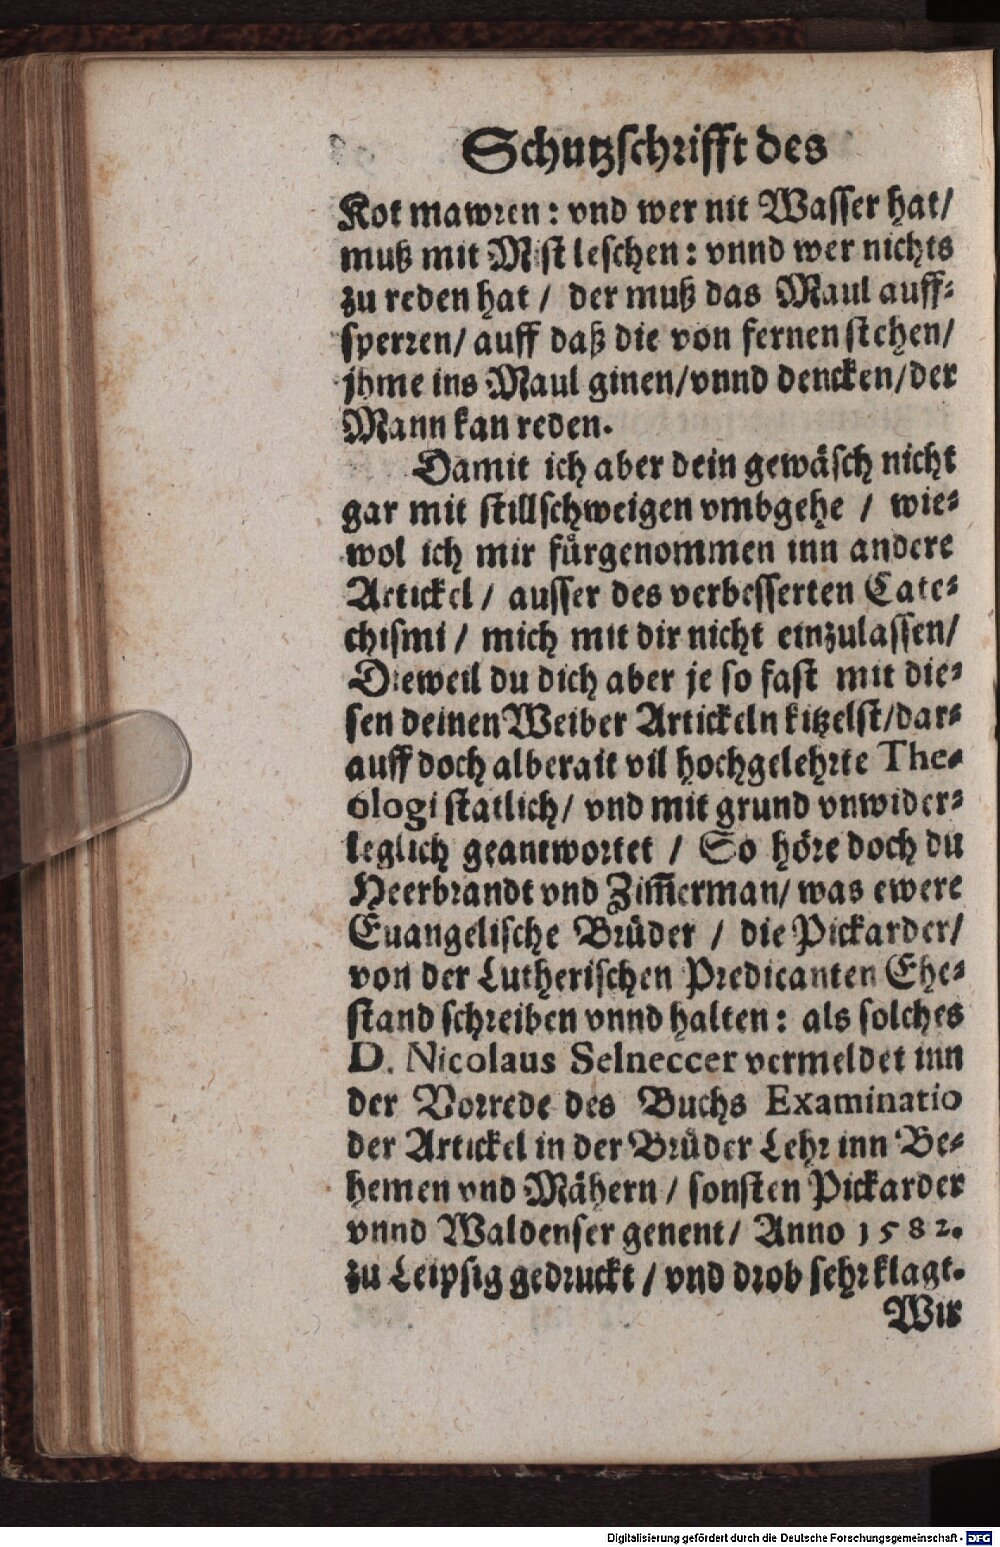 Schutzschrifft des
Kot mawren: vnd wer nit Wasser hat/
muß mit Mist leschen: vnnd wer nichts
zu reden hat / der muß das Maul auff-
sperren/ auff daß die von fernen stehen/
jhme ins Maul ginen/vnnd dencken/der
Mann kan reden.
Damit ich aber dein gewäsch nicht
gar mit stillschweigen vmbgehe / wie-
wol ich mir fürgenommen inn andere
Artickel / ausser des verbesserten Cate-
chismi / mich mit dir nicht einzulassen/
Dieweil du dich aber je so fast mit die-
sen deinen Weiber Artickeln kitzelst/dar-
auff doch alberait vil hochgelehrte The-
ologi statlich/ vnd mit grund vnwider-
leglich geantwortet / So höre doch du
Heerbrandt vnd Zim̄erman/ was ewere
Euangelische Brüder / die Pickarder/
von der Lutherischen Predicanten Ehe-
stand schreiben vnnd halten: als solches
D. Nicolaus Selneccer vermeldet inn
der Vorrede des Buchs Examinatio
der Artickel in der Brüder Lehr inn Be-
hemen vnd Mähern / sonsten Pickarder
vnnd Waldenser genent/ Anno 1582.
zu Leipsig gedruckt / vnd drob sehr klagt.
Wir
Digitalisierung gefördert durch die Deutsche Forschungsgemeinschaft - DFG